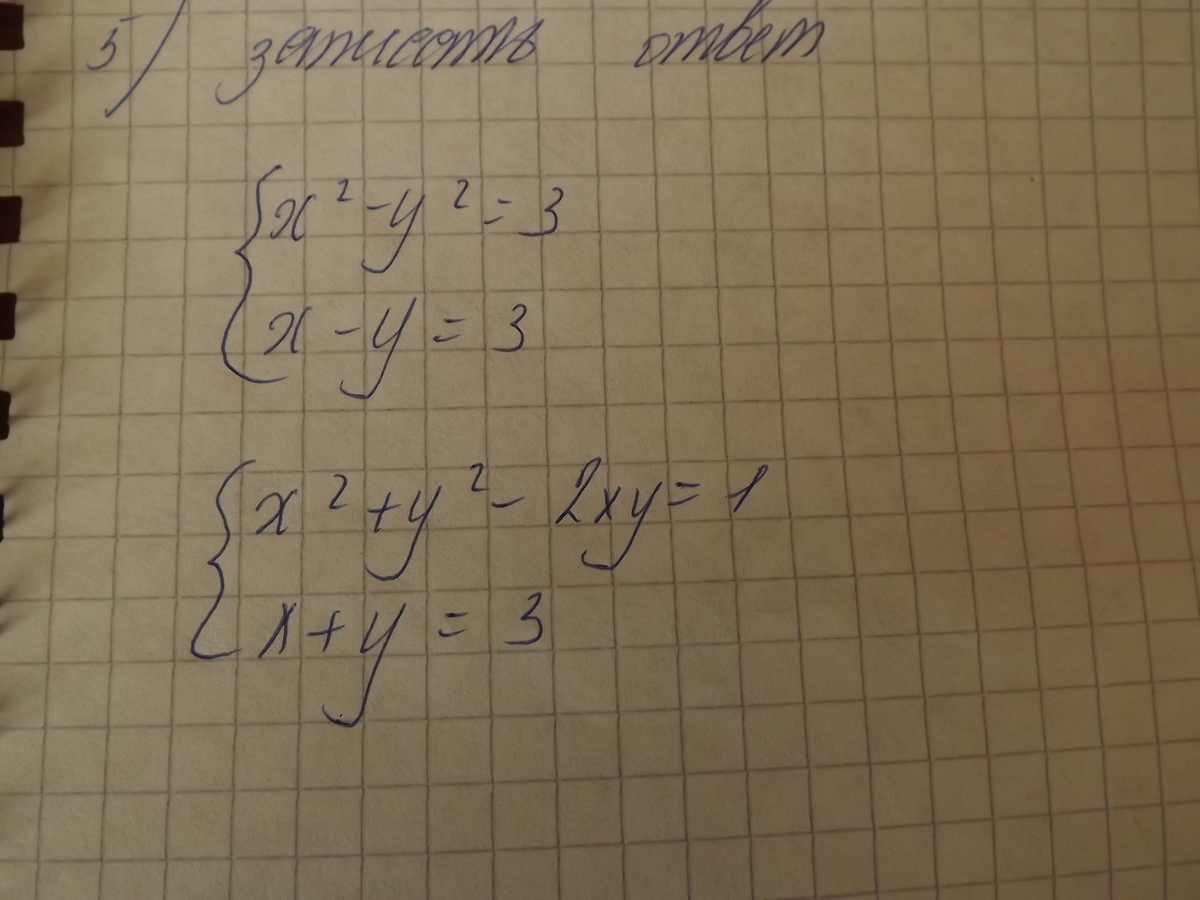 5) записать ответ
x² - y² = 3
x - y = 3
x² + y² - 2xy = 1
x + y = 3